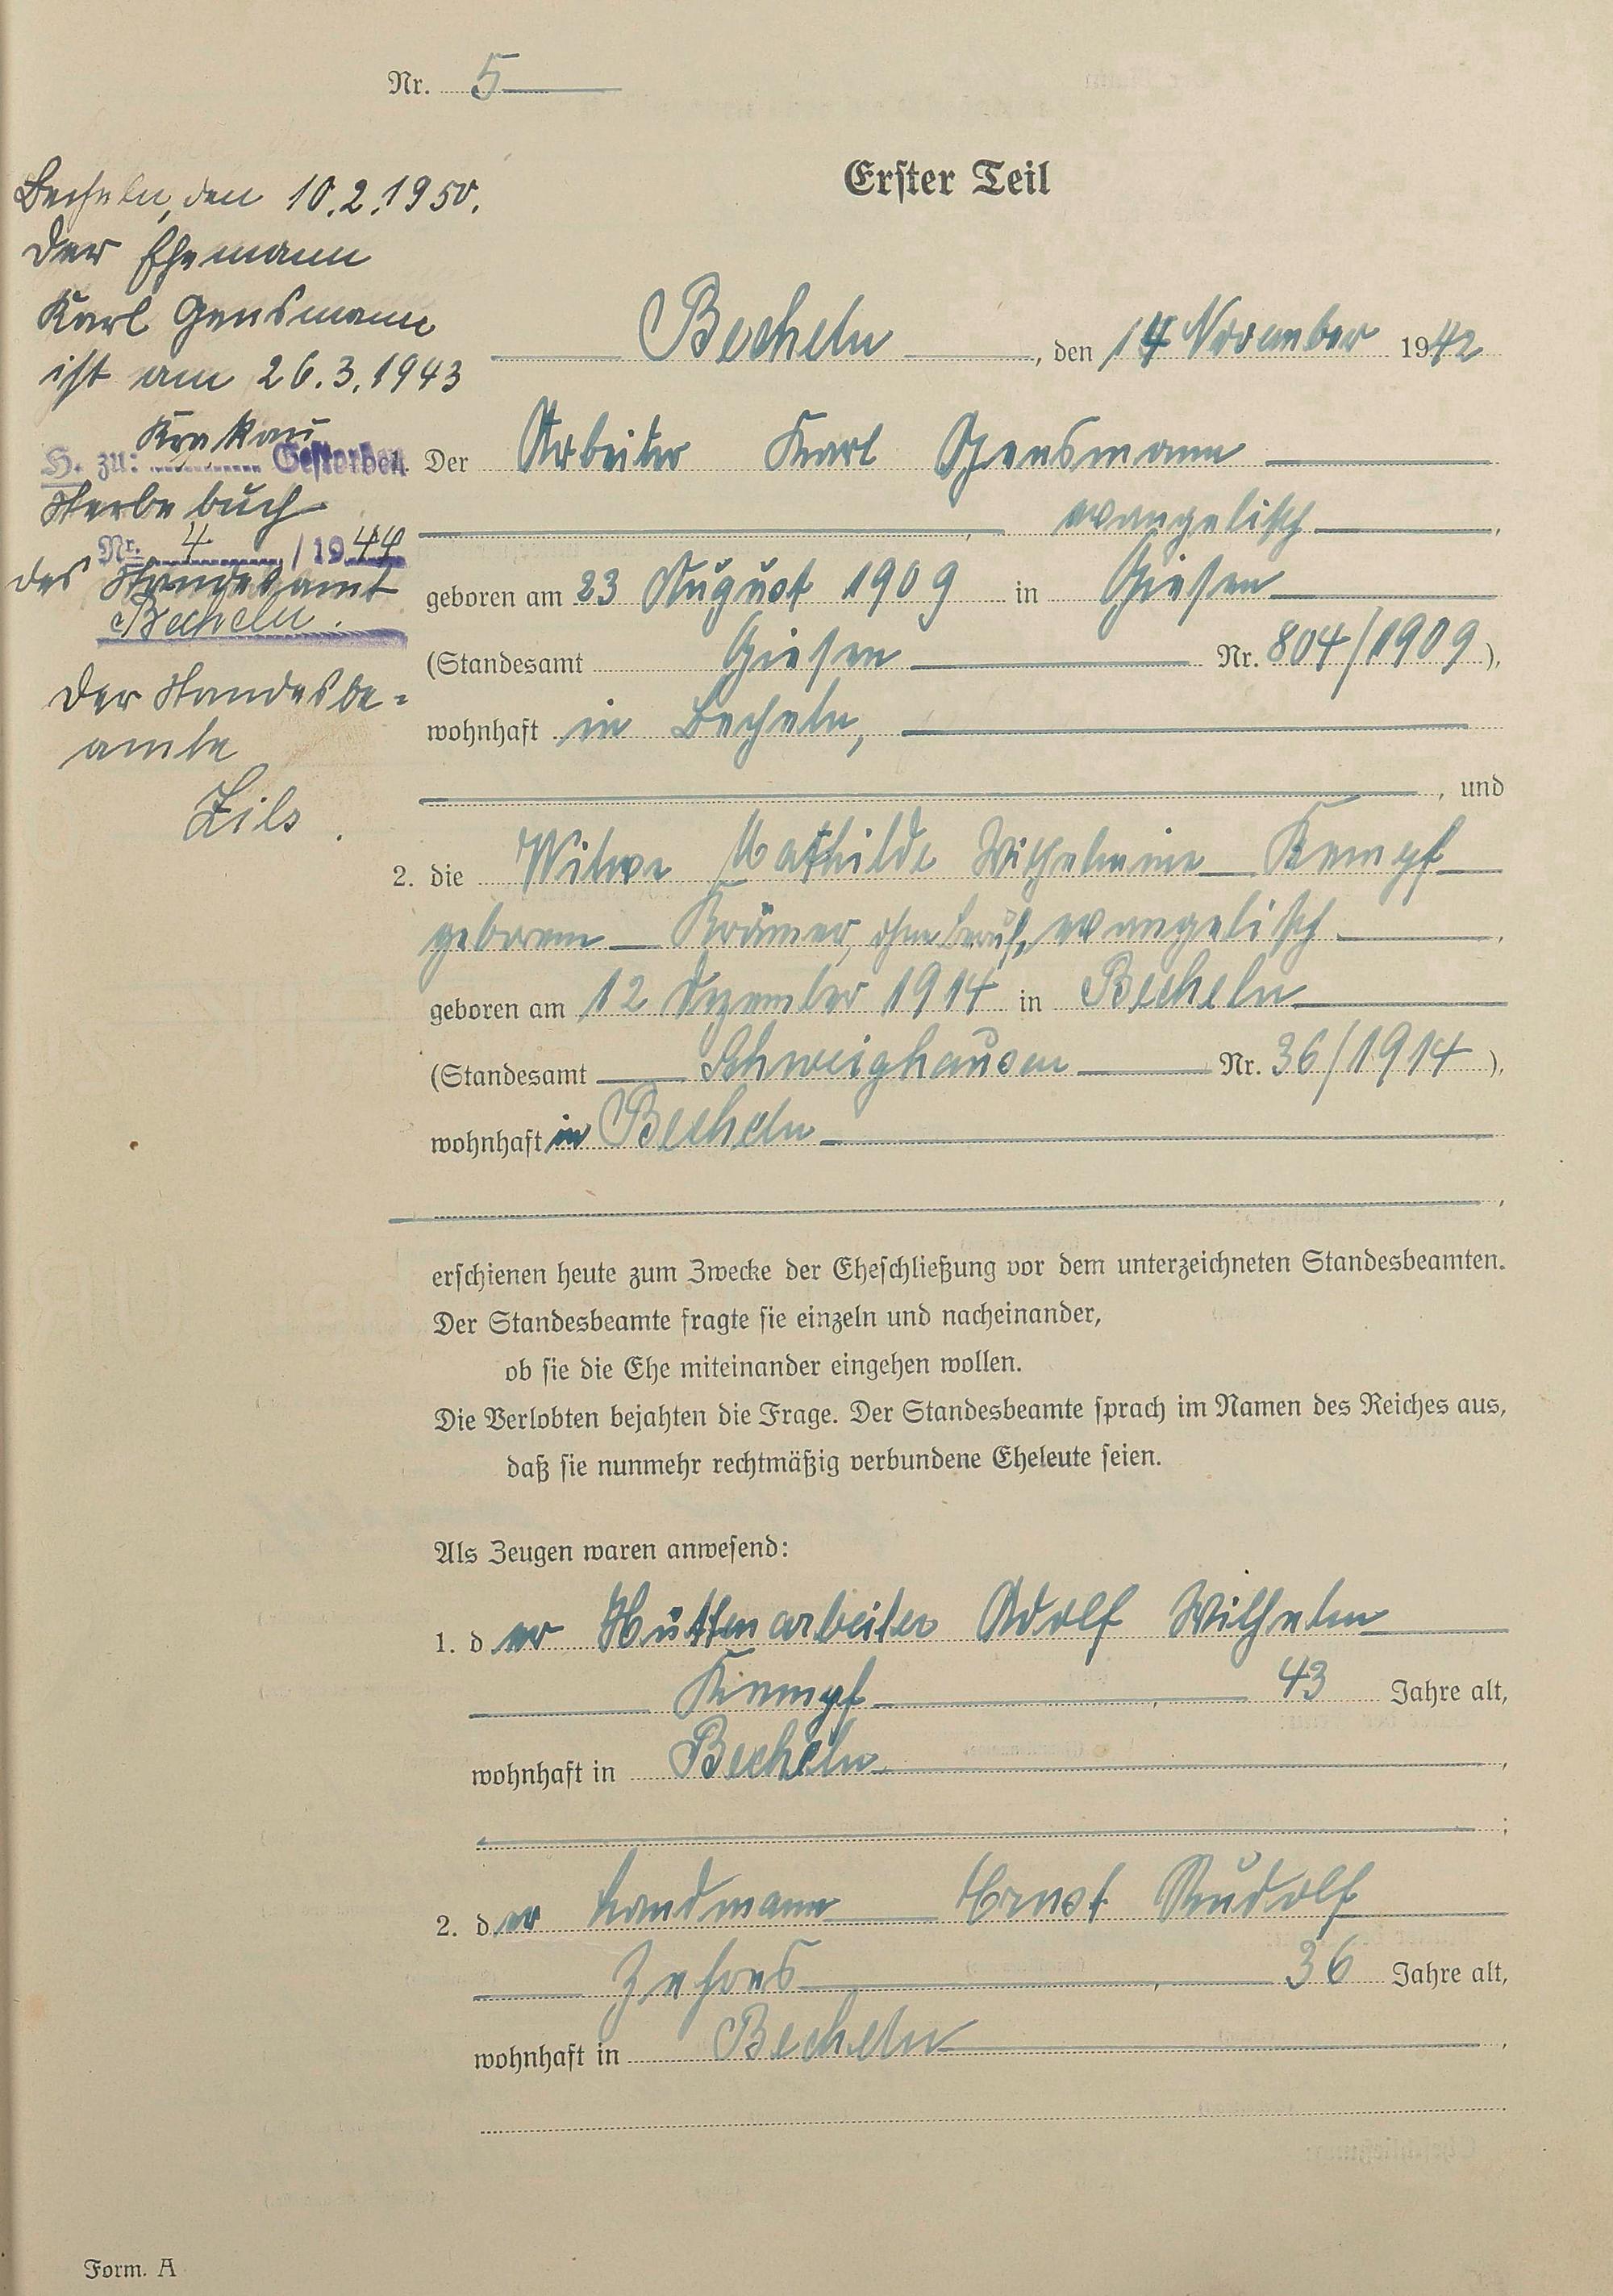 Nr. 5
Becheln, den 10.2.1950.
Der Ehemann
Karl Gensmann
ist am 26.3.1943
Krakau
H. zu: Gestorben.
Sterbebuch
Nr. 4 / 1944
des Standesamt
Becheln.
Der Standesbe-
amte
Zils.
Erster Teil
Becheln, den 14 November 1942
1. Der Arbeiter Karl Gensmann
, evangelisch,
geboren am 23 August 1909 in Giesen
(Standesamt Giesen Nr. 804/1909),
wohnhaft in Becheln,
, und
2. die Witwe Mathilde Wilhelmine Kempf
geborene Krämer, ohne Beruf, evangelisch,
geboren am 12 Dezember 1914 in Becheln
(Standesamt Schweighausen Nr. 36/1914),
wohnhaft in Becheln
,
erschienen heute zum Zwecke der Eheschließung vor dem unterzeichneten Standesbeamten.
Der Standesbeamte fragte sie einzeln und nacheinander,
ob sie die Ehe miteinander eingehen wollen.
Die Verlobten bejahten die Frage. Der Standesbeamte sprach im Namen des Reiches aus,
daß sie nunmehr rechtmäßig verbundene Eheleute seien.
Als Zeugen waren anwesend:
1. der Hüttenarbeiter Adolf Wilhelm
Kempf, 43 Jahre alt,
wohnhaft in Becheln,
;
2. der Landmann Ernst Rudolf
, 36 Jahre alt,
wohnhaft in Becheln,
Form. A